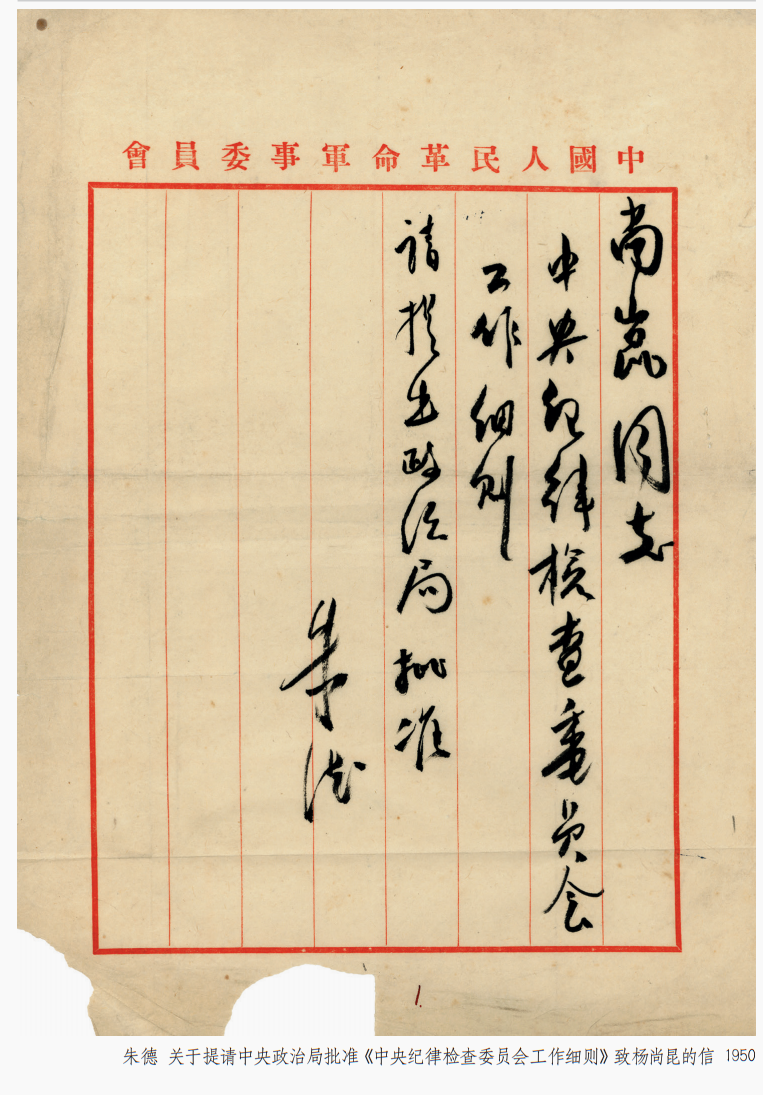 中國人民革命軍事委員會
尚崑同志
中央纪律检查委员会
工作细则
请提出政治局批准
朱德
1.
朱德 关于提请中央政治局批准《中央纪律检查委员会工作细则》致杨尚昆的信 1950